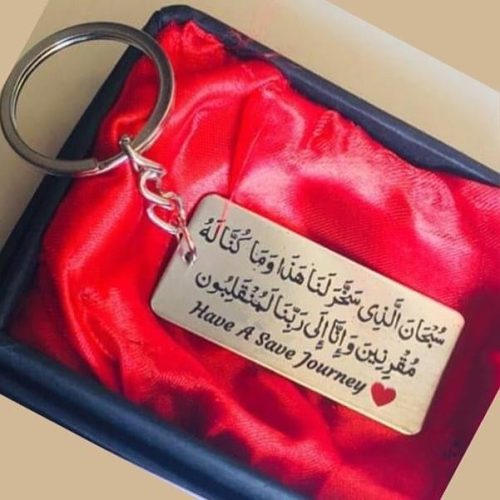 سُبْحَانَ الَّذِي سَخَّرَ لَنَا هَذَا وَمَا كُنَّا لَهُ
مُقْرِنِينَ وَإِنَّا إِلَى رَبِّنَا لَمُنْقَلِبُون
Have A Save Journey ❤